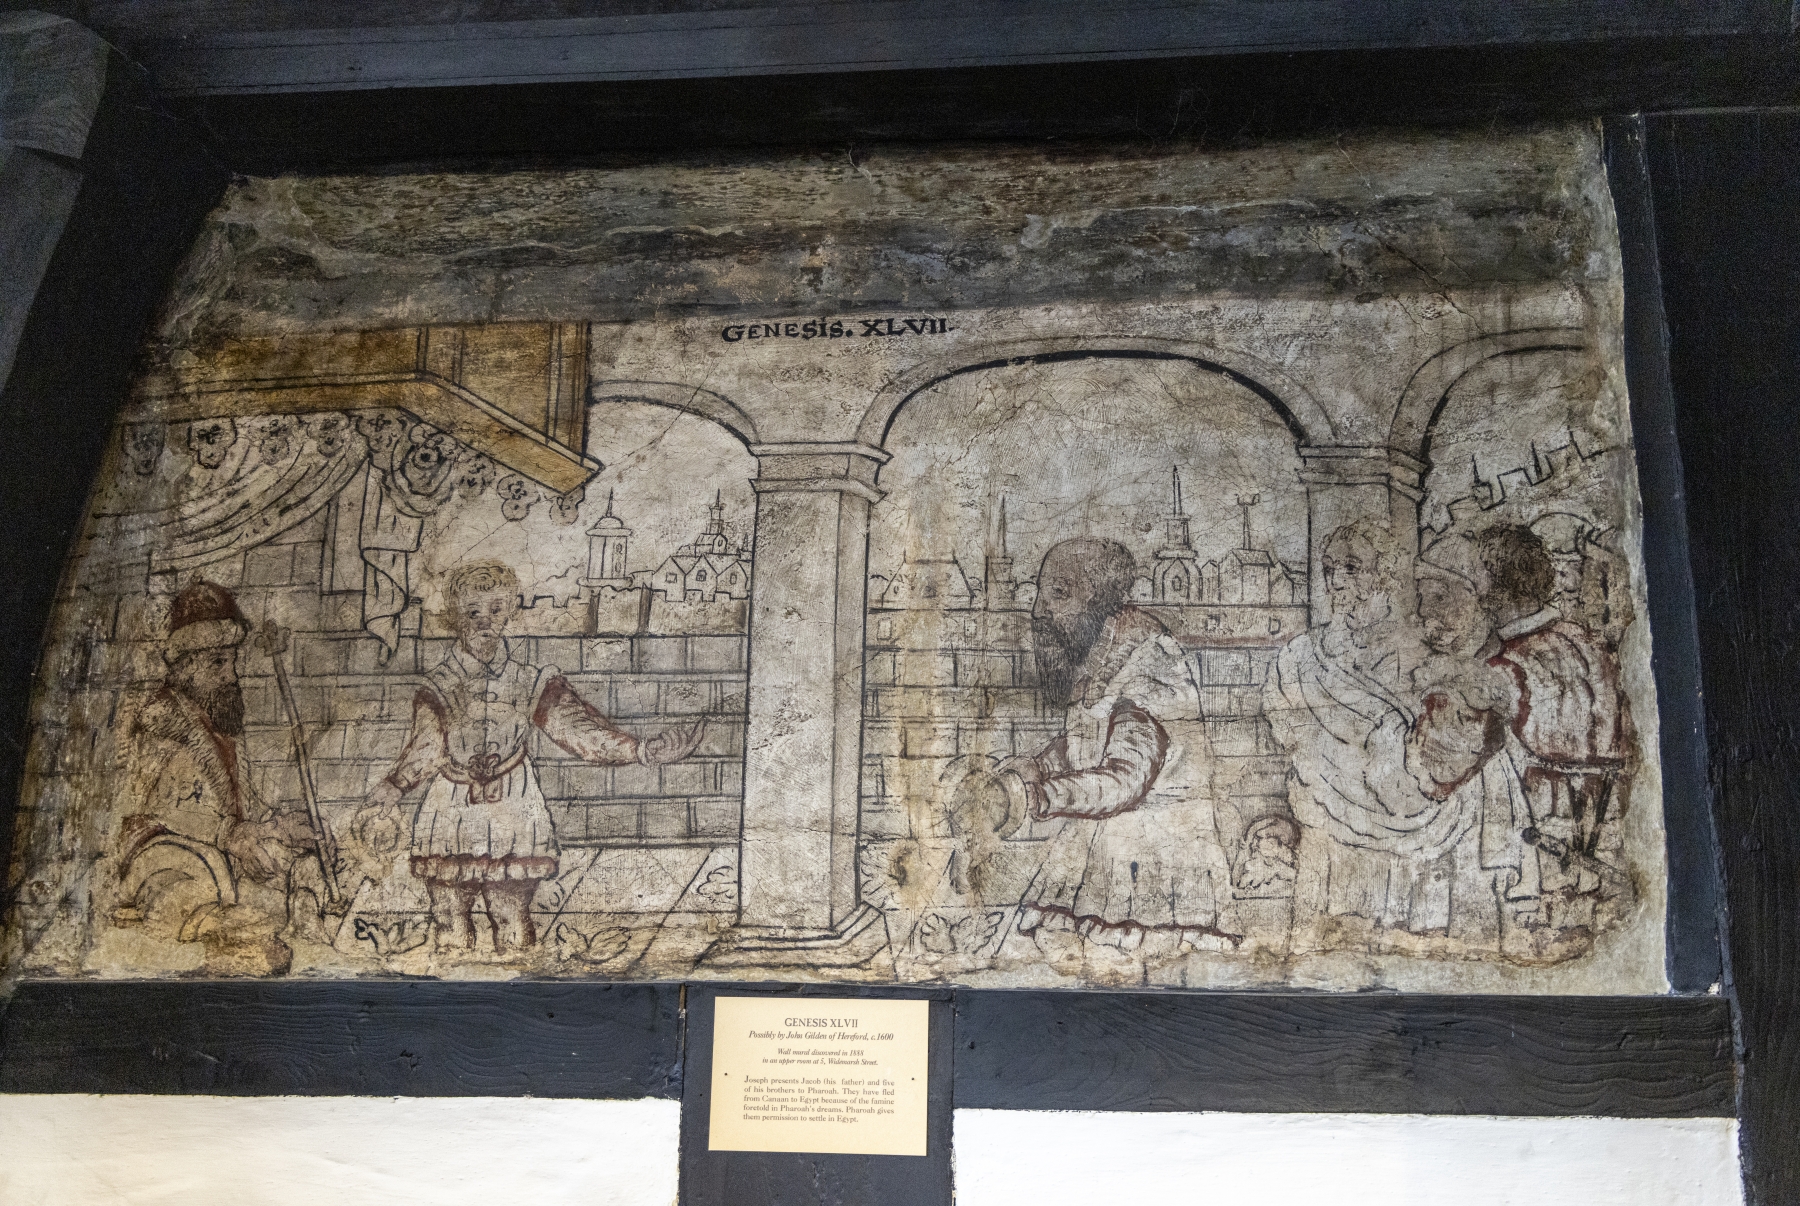 GENESIS. XLVII
GENESIS XLVII
Possibly by John Gilden of Hereford, c.1600
Wall mural discovered in 1888
in an upper room at 5, Widemarsh Street.
Joseph presents Jacob (his father) and five
of his brothers to Pharoah. They have fled
from Canaan to Egypt because of the famine
foretold in Pharoach's dreams. Pharoah gives
them permission to settle in Egypt.